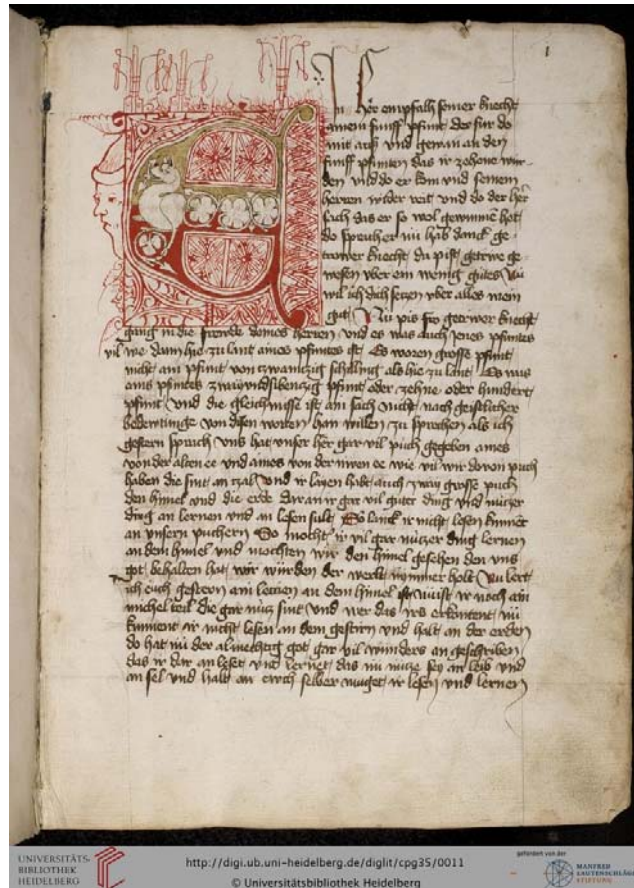 1
Ein her empfalh seiner knecht
ainem funff pfunt der fur do
mit auß und gewan an den
funff pfunten das ir zehene wur-
den und do er kom und seinem
herren wider reit und do der her
sach das er so wol gewunnē het
do sprach er nu hab danck ge-
trewer knecht du pist getrew ge-
wesen uber ein wenig gutes Nu
wil ich dich seczen uber alles mein
gut Nu pis fro getrewer knecht
gang in die frewde deines herren und es was auch jenes pfuntes
vil we dann hie zu lant aines pfuntes ist Es woren grosse pfunt
nicht ain pfunt von czwainczig schilling als hie zu lant Es was
ains pfuntes zwaiundsibenczig pfunt oder zehne oder hundert
pfunt Und die gleichnisse ist ain sach nicht nach geistlicher
bedewtunge von disen worten han willen zu sprechen als ich
gestern sprach uns hat unser her gar vil puch gegeben aines
von der alten ee und aines von der niwen ee wie vil wir doron puch
haben die sint an czal Und ir layen habt auch zway grosse puch
den himel und die erde daran ir gar vil guter ding und nuczer
ding an lernen und an lesen sult So lanck ir nicht lesen kunnet
an unsern puchern So mocht ir vil gar nuczer ding lernen
an dem himel und mochten wir den himel gesehen den uns
got behalten hat wir wurden der werlt nymmer holt Nu lert
ich euch gestern ain leccien an dem himel ist nu ist ir noch ain
michel teil die gar nucz sint und wer das irs erkantent nu
kunnent ir nicht lesen an dem gestirn und halt an der erden
do hat nu der almechtig got gar vil wunders an geschriben
das ir dar an leset und lernet das nu nucze sey an leib und
an sel und halt an ewch selber muget ir lesen und lernen
UNIVERSITÄTS-
BIBLIOTHEK
HEIDELBERG
http://digi.ub.uni-heidelberg.de/diglit/cpg35/0011
© Universitätsbibliothek Heidelberg
gefördert von der
MANFRED
LAUTENSCHLÄGER
STIFTUNG